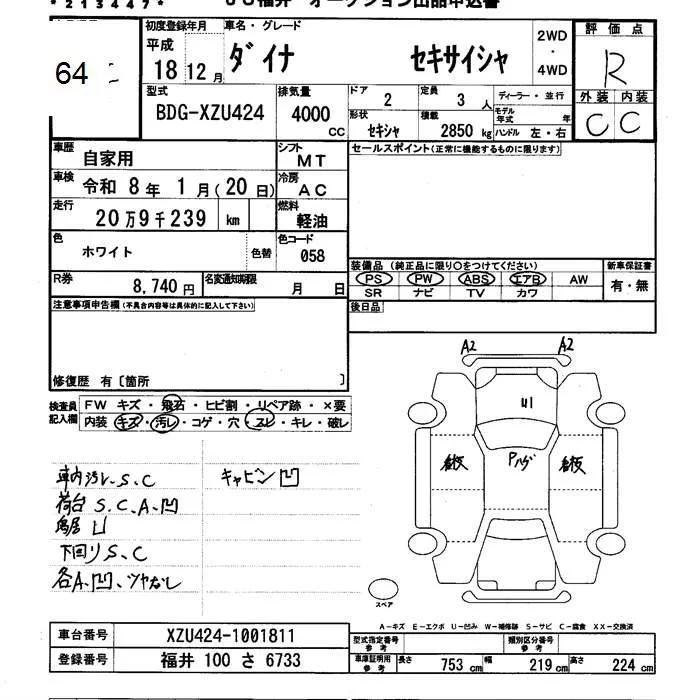 *213447*
ＪＵ福井 オークション出品申込書
64
初度登録年月
平成
18 12 月
車名・グレード
ダイナ セキサイシャ
2WD
・
4WD
評価点
R
外装 内装
C C
型式
BDG-XZU424
排気量
4000
CC
ドア
2
定員
3 人
ディーラー・並行
形状
セキシャ
積載
2850 kg
モデル年式 年
ハンドル 左・右
車歴
自家用
シフト
MT
セールスポイント(正常に機能するものに限ります)
車検
令和 8 年 1 月(20 日)
冷房
AC
走行
20万9千239 km
燃料
軽油
色
ホワイト
色替
色コード
058
装備品 (純正品に限り○をつけてください)
新車保証書
PS PW ABS エアB AW
有・無
SR ナビ TV カワ
R券
8,740円
名変通知期限
月 日
後日品
注意事項申告欄(不具合内容等は具体的に記入して下さい)
修復歴 有〔箇所 〕
検査員記入欄
FW キズ・飛石・ヒビ割・リペア跡・×要
内装 キズ・汚レ・コゲ・穴・スレ・キレ・破レ
車内汚レ、S、C
キャビン凹
荷台 S、C、A、凹
鳥居 U
下回り S、C
各A、凹、ツヤなし
A2 A2
U1
Pハゲ
スペア
A－キズ E－エクボ U－凹み W－補修跡 S－サビ C－腐食 XX－交換済
車台番号
XZU424-1001811
登録番号
福井 100 さ 6733
型式指定番号
参考
類別区分番号
参考
車庫証明用
参考
長さ
753 cm
幅
219 cm
高さ
224 cm